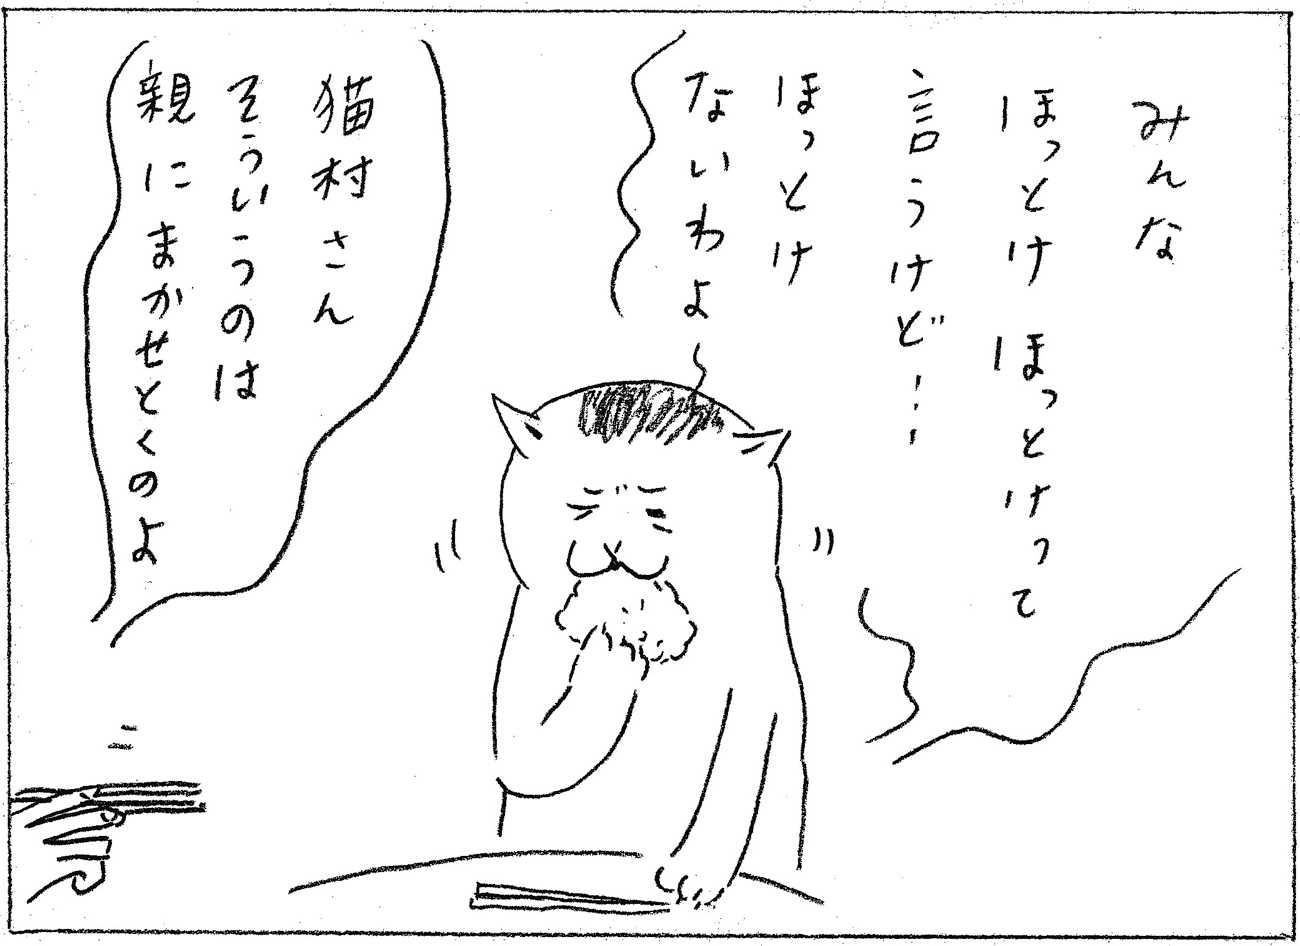 みんな
ほっとけ ほっとけって
言うけど…
ほっとけ
ないわよ〜
猫村さん
そういうのは
親にまかせとくのよ